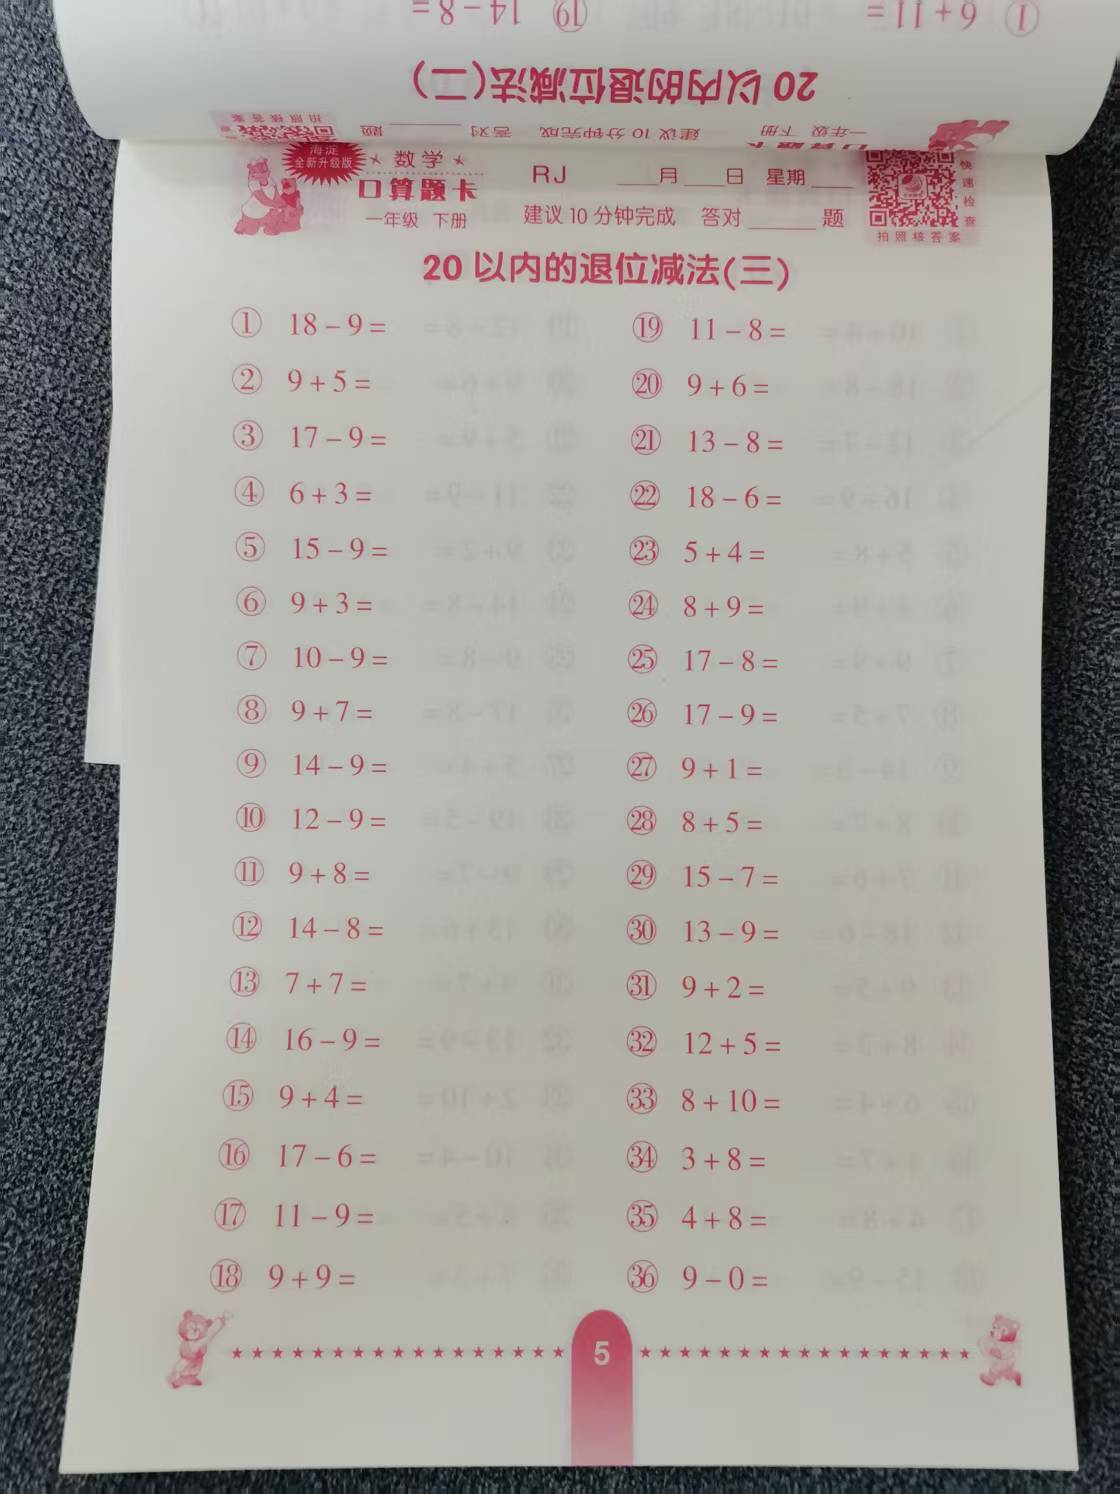 ① 6+11=
⑲ 14-8=
20以内的退位减法(二)
一年级 下册 建议10分钟完成 答对____题
拍照核答案
海淀
全新升级版
数学
口算题卡
一年级 下册
RJ ___月___日 星期___
建议10分钟完成 答对____题
快速检查
拍照核答案
20以内的退位减法(三)
① 18-9=
② 9+5=
③ 17-9=
④ 6+3=
⑤ 15-9=
⑥ 9+3=
⑦ 10-9=
⑧ 9+7=
⑨ 14-9=
⑩ 12-9=
⑪ 9+8=
⑫ 14-8=
⑬ 7+7=
⑭ 16-9=
⑮ 9+4=
⑯ 17-6=
⑰ 11-9=
⑱ 9+9=
⑲ 11-8=
⑳ 9+6=
㉑ 13-8=
㉒ 18-6=
㉓ 5+4=
㉔ 8+9=
㉕ 17-8=
㉖ 17-9=
㉗ 9+1=
㉘ 8+5=
㉙ 15-7=
㉚ 13-9=
㉛ 9+2=
㉜ 12+5=
㉝ 8+10=
㉞ 3+8=
㉟ 4+8=
㊱ 9-0=
5